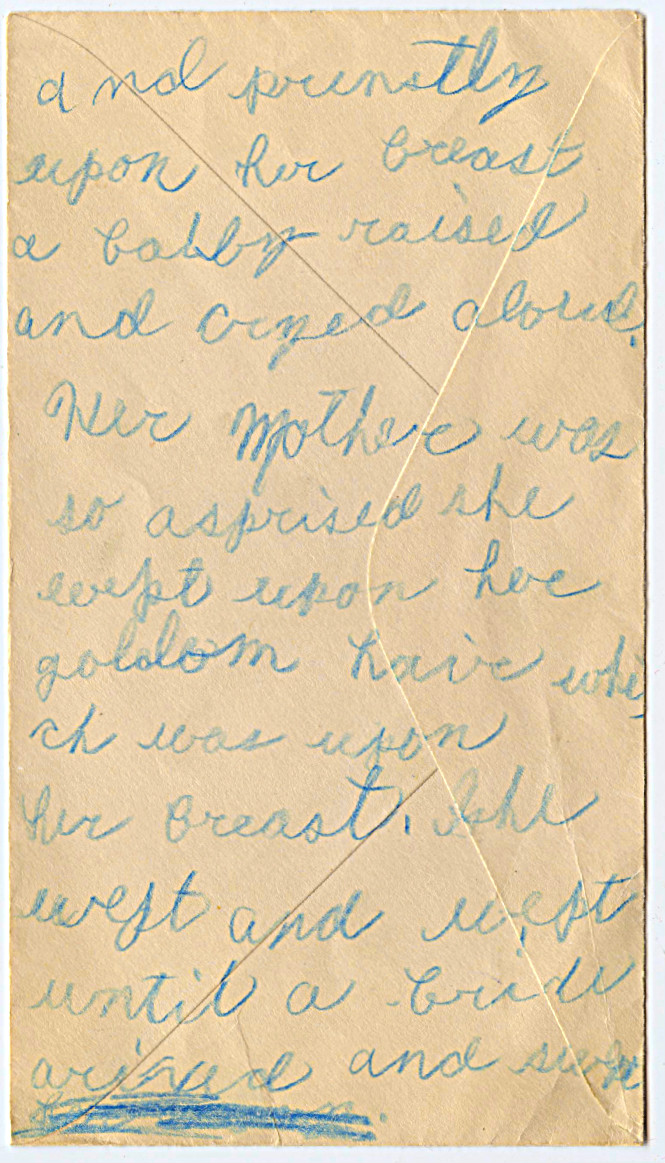 and prunstly
upon her breast
a babby raised
and cryed aloud.
Her Mother was
so asprised she
wept upon her
goldom haire whi
ch was upon
her breast. She
wept and wept
until a bride
arived and